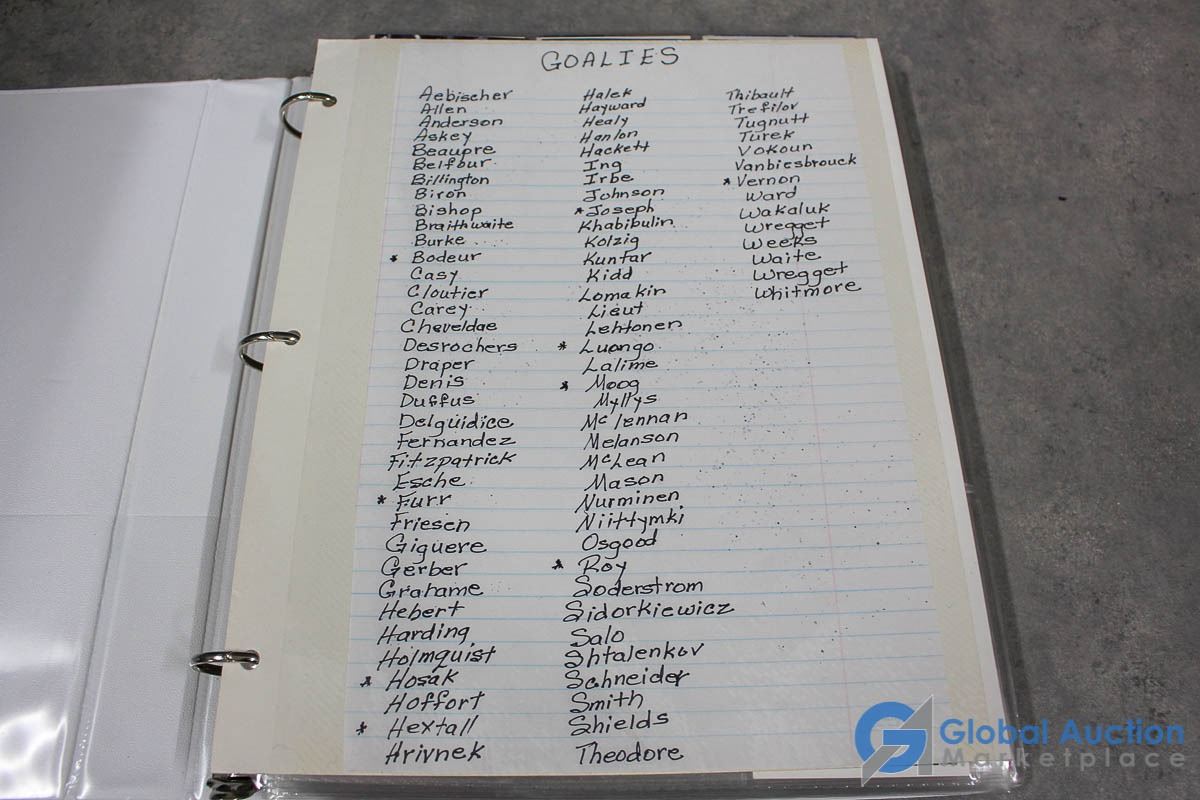 GOALIES
Aebischer
Allen
Anderson
Askey
Beaupre
Belfour
Billington
Biron
Bishop
Braithwaite
Burke
* Bodeur
Casy
Cloutier
Carey
Cheveldae
Desrochers
Draper
Denis
Duffus
Delguidice
Fernandez
Fitzpatrick
Esche
* Furr
Friesen
Giguere
Gerber
Grahame
Hebert
Harding
Holmquist
* Hosak
Hoffort
* Hextall
Hrivnek
Halek
Hayward
Healy
Hanlon
Hackett
Ing
Irbe
Johnson
* Joseph
Khabibulin
Kolzig
Kuntar
Kidd
Lomakin
Lieut
Lehtonen
* Luongo
Lalime
* Moog
Myllys
Mclennan
Melanson
McLean
Mason
Nurminen
Niittymki
Osgood
* Roy
Soderstrom
Sidorkiewicz
Salo
Shtalenkov
Schneider
Smith
Shields
Theodore
Thibault
Trefilov
Tugnutt
Turek
Vokoun
Vanbiesbrouck
* Vernon
Ward
Wakaluk
Wregget
Weeks
Waite
Wregget
Whitmore
Global Auction
Marketplace